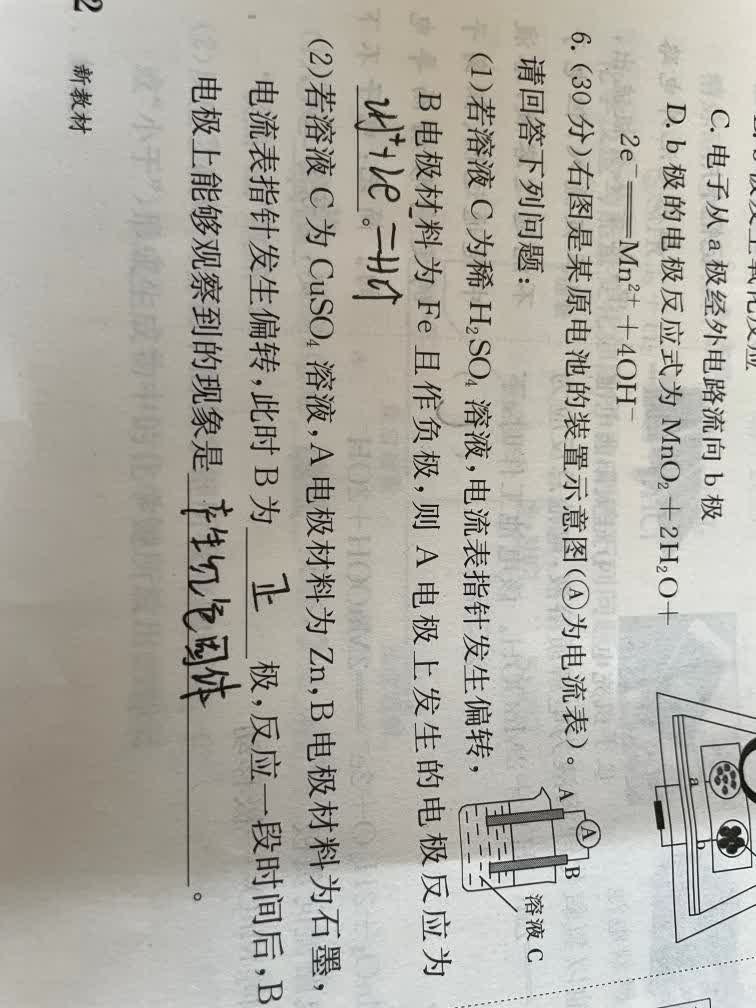 C. 电子从 a 极经外电路流向 b 极
D. b 极的电极反应式为 MnO₂ + 2H₂O +
2e⁻ == Mn²⁺ + 4OH⁻
6. (30 分)右图是某原电池的装置示意图(Ⓐ为电流表)。
请回答下列问题:
A
Ⓐ
B
溶液 C
a
b
(1)若溶液 C 为稀 H₂SO₄ 溶液,电流表指针发生偏转,
B 电极材料为 Fe 且作负极,则 A 电极上发生的电极反应为
。
(2)若溶液 C 为 CuSO₄ 溶液,A 电极材料为 Zn,B 电极材料为石墨,
电流表指针发生偏转,此时 B 为 正 极,反应一段时间后,B
电极上能够观察到的现象是 产生红色固体 。
2 新教材